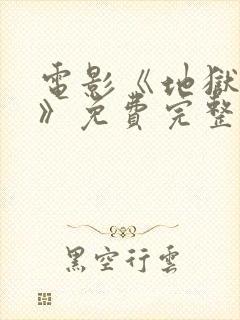 電影《地獄
》免費完整
黑空行雲